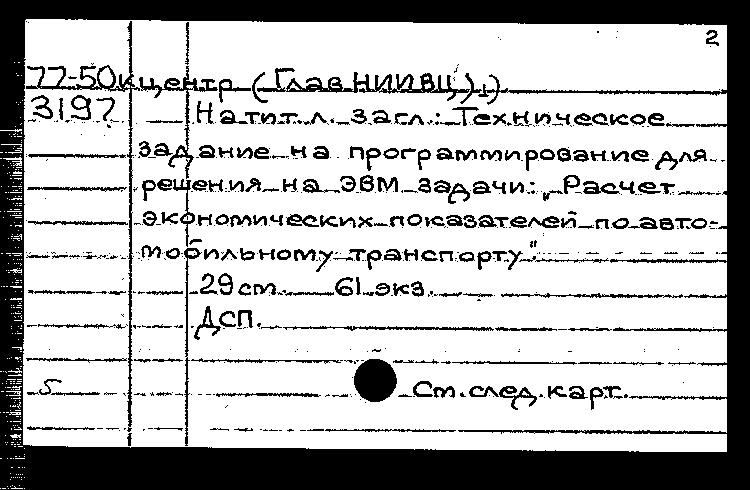 2
77-50кцентр (ГлавНИИВЦ)1)
3197 На тит. л. загл.: Техническое
задание на программирование для
решения на ЭВМ задачи: „Расчет
экономических показателей по авто-
мобильному транспорту".
29 см. 61 экз.
ДСП.
5 См. след. карт.